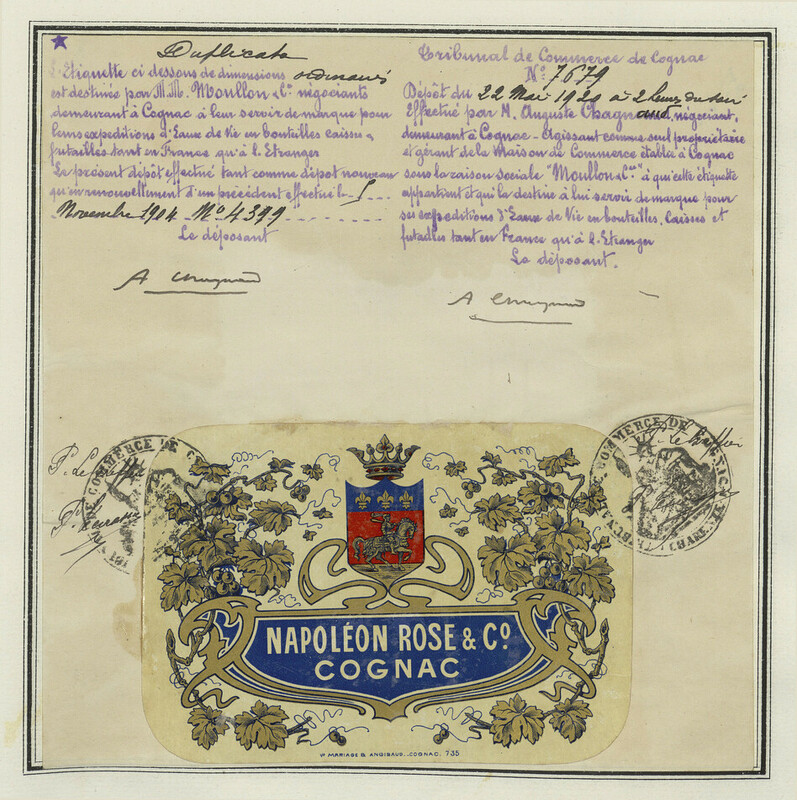 Duplicata
L'Etiquette ci dessous de dimensions ordinaires
est destinée par M.M. Moullon & Cie négociants
demeurant à Cognac à leur servir de marque pour
leurs expeditions d'Eaux de Vie en bouteilles caisses &
futailles tant en France qu'à l'Etranger
Le présent dépôt effectué tant comme dépot nouveau
qu'en renouvellement d'un précédent effectué le 5
Novembre 1904 No 4399
Le déposant
Tribunal de Commerce de Cognac
No 7679
Dépôt du 22 Mai 1920 à 2 heures du soir
Effectué par M. Auguste négociant,
demeurant à Cognac - Agissant comme seul propriétaire
et gérant de la Maison de Commerce établie à Cognac
sous la raison sociale "Moullon & Cie" à qui cette étiquette
appartient et qui la destine à lui servir de marque pour
ses expeditions d'Eaux de Vie en bouteilles, Caisses et
futailles tant en France qu'à l'Etranger
Le déposant.
COMMERCE DE
COMMERCE DE COGNAC
NAPOLÉON ROSE & Co
COGNAC
Vve MARIAGE & ANGIBAUD. COGNAC. 735